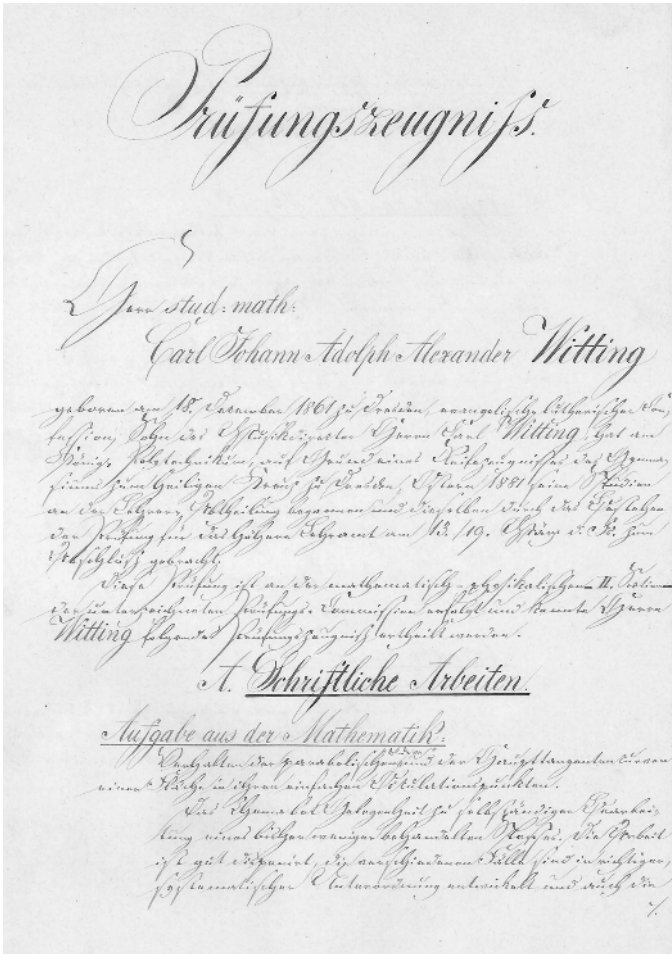 Prüfungszeugniss.
Herr stud: math:
Carl Johann Adolph Alexander Witting
geboren am 18. December 1861 zu Dresden, evangelisch-lutherischer Con-
fession, Sohn des Musikdirector Herrn Carl Witting, hat am
Königl. Polytechnikum, auf Grund eines Reifezeugnisses des Gymna-
siums zum heiligen Kreuz zu Dresden, Ostern 1881 seine Studien
an der Lehrer-Abtheilung begonnen und dieselben durch das Bestehen
der Prüfung für das höhere Lehramt am 19. März d. J. zum
Abschluß gebracht.
Diese Prüfung ist an der mathematisch-physikalischen II. Section
der unterzeichneten Prüfungs-Commission erfolgt und konnte Herrn
Witting folgendes Prüfungszeugniß ertheilt werden.
A. Schriftliche Arbeiten.
Aufgabe aus der Mathematik:
Verhalten der parabolischen und der Haupttangentencurven
einer Fläche in ihren einfachen
Das Thema bot Gelegenheit zu selbständiger Bearbei-
tung eines bisher weniger behandelten Stoffes. Die Arbeit
ist gut disponirt, die verschiedenen Fälle sind in richtiger,
systematischer Unterordnung entwickelt und auch die